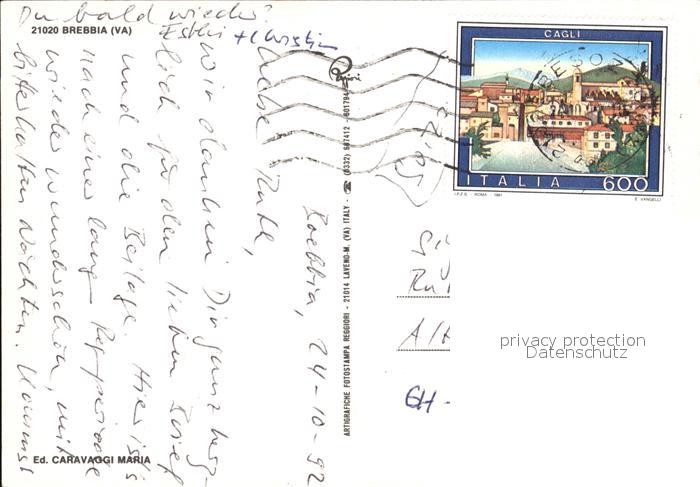 21020 BREBBIA (VA)
Brebbia, 24-10-92
Liebe Ruth,
wir danken Dir ganz herz-
lich für den lieben Brief
und die Beilage. Hier ist's
nach einer lang Regenperiode
wieder wunderschön, mit
bitterkalten Nächten. Kommst
Du bald wieder?
Esthi + Christian
Ed. CARAVAGGI MARIA
ARTIGRAFICHE FOTOSTAMPA REGGIORI - 21014 LAVENO-M. (VA) ITALY - ☎ (0332) 667412 - 601794
CAGLI
ITALIA 600
I.P.Z.S. - ROMA - 1981
E. VANGELLI
CH-
privacy protection
Datenschutz